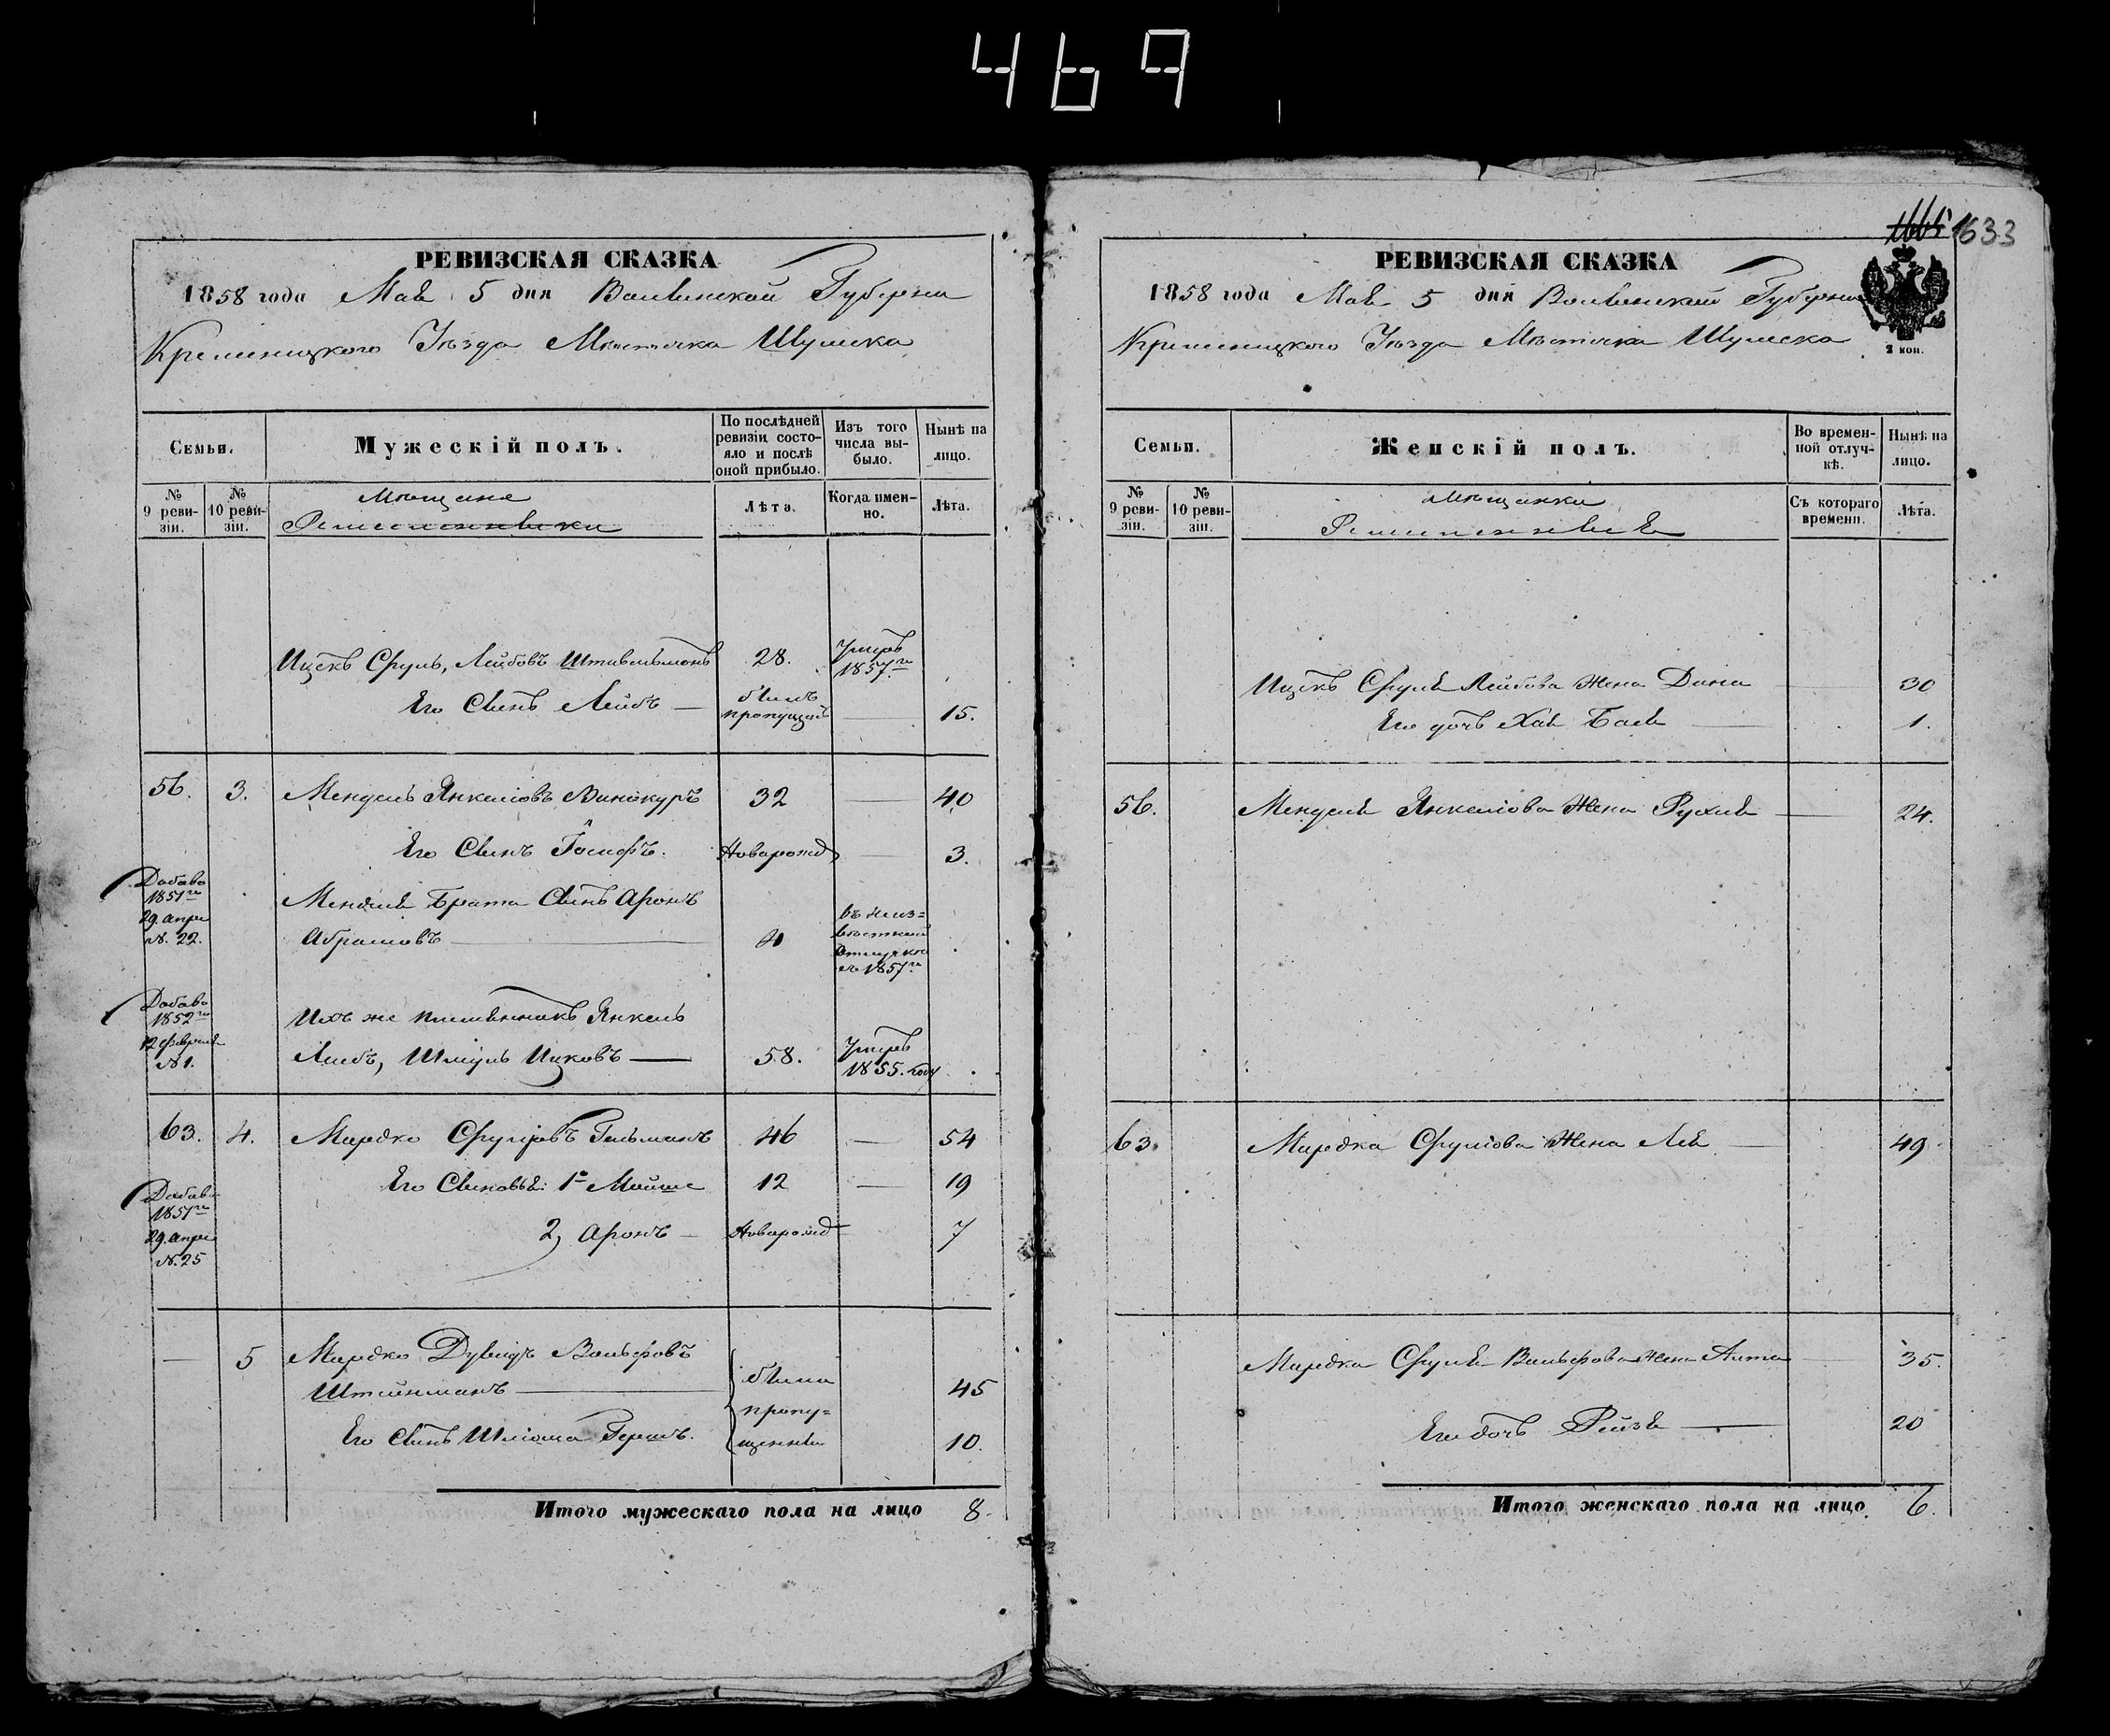 469
РЕВИЗСКАЯ СКАЗКА
1858 года Мая 5 дня Волынской Губерни
Кременецкого Уѣзда Мѣстечка Шумска
Семьи.
Мужескій полъ.
По послѣдней ревизіи состояло и послѣ оной прибыло.
Изъ того числа выбыло.
Нынѣ на лицо.
№ 9 ревизіи.
№ 10 ревизіи.
Мѣщане
Лѣта.
Когда именно.
Лѣта.
Ицекъ Сруль, Лейбовъ Штивельманъ 28. Умеръ 1857го
Его Сынъ Лейбъ — былъ пропущенъ — 15.
56. 3. Мендель Янкелiовъ Винокуръ 32 — 40
Его Сынъ Iосифъ. Новорожд — 3.
Добав 1851го 29. апре N. 22.
Менделя Брата Сынъ Аронъ
Абрамовъ — 4 въ неизвѣстной отлучкѣ съ 1857го
Добав 1852го 12 февраля N 1.
Ихъ же племянникъ Янкель
Лейбъ, Шмуль Ицковъ — 58. Умеръ 1855. году
63. 4. Мордко Сруліовъ Гельманъ 46 — 54
Его Сыновья: 1е Мойше 12 — 19
Добав 1851го 29. апре N. 25
2, Аронъ — Новорожд — 7
— 5 Мордко Дувидъ Вольфовъ
Штейнманъ — были пропущенны 45
Его Сынъ Шліома Гершъ. 10.
Итого мужескаго пола на лицо 8.
1633
РЕВИЗСКАЯ СКАЗКА
1858 года Мая 5 дня Волынской Губернии
Кременецкого Уѣзда Мѣстечка Шумска
2 коп.
Семьи.
Женскій полъ.
Во временной отлучкѣ.
Нынѣ на лицо.
№ 9 ревизіи.
№ 10 ревизіи.
Мѣщанки
Съ котораго времени.
Лѣта.
Ицекъ Сруля Лейбова Жена Дина — 30
Его дочь Хая Бася — 1.
56. Менделя Янкелiова Жена Рухля — 24.
63. Мордка Сруліова Жена Лея — 49
Мордка Сруля Вольфова Жена Алта — 35.
Его дочь Рейзя — 20
Итого женскаго пола на лицо. 6.